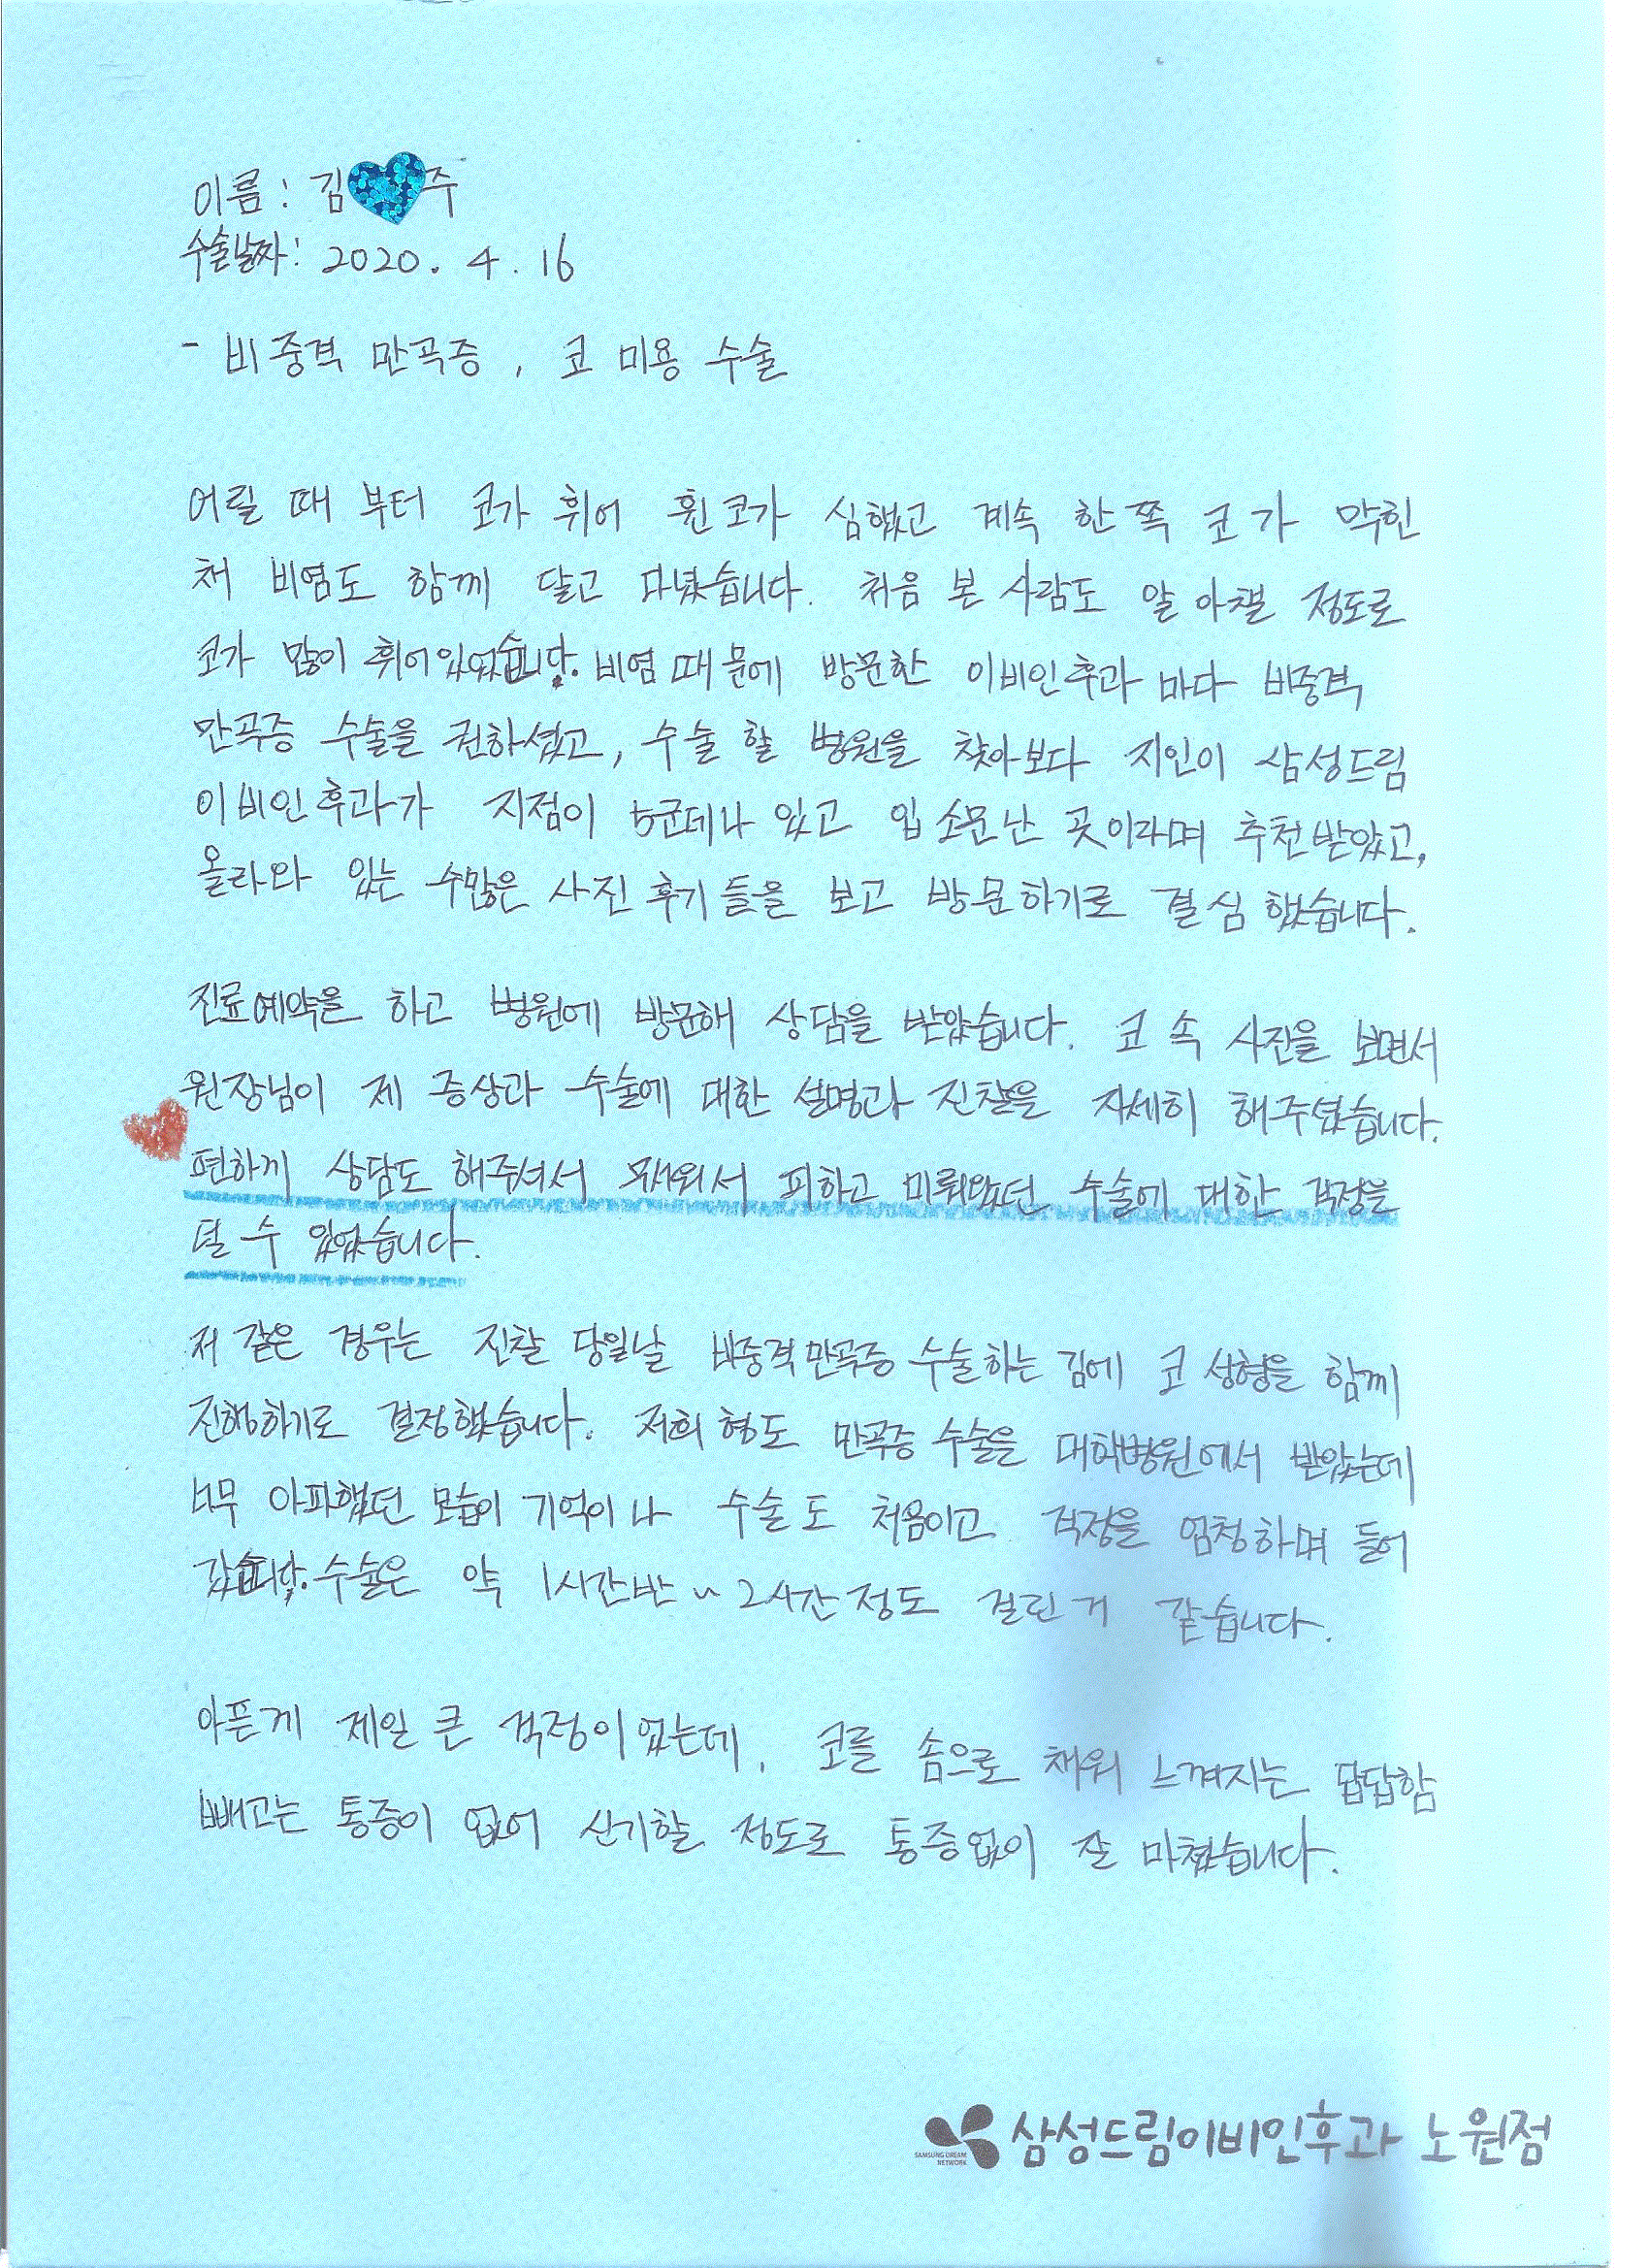 이름 : 김 주
수술날짜 : 2020. 4. 16
- 비중격 만곡증, 코 미용 수술
어릴 때 부터 코가 휘어 휜코가 심했고 계속 한쪽 코가 막힌
채 비염도 함께 달고 다녔습니다. 처음 본 사람도 알아챌 정도로
코가 많이 휘어있었습니다. 비염 때문에 방문한 이비인후과 마다 비중격
만곡증 수술을 권하셨고, 수술 할 병원을 찾아보다 지인이 삼성드림
이비인후과가 지점이 5군데나 있고 입소문난 곳이라며 추천받았고,
올라와 있는 수많은 사진 후기들을 보고 방문하기로 결심했습니다.
진료예약을 하고 병원에 방문해 상담을 받았습니다. 코 속 사진을 보면서
원장님이 제 증상과 수술에 대한 설명과 진찰을 자세히 해주셨습니다.
편하게 상담도 해주셔서 무서워서 피하고 미뤄왔던 수술에 대한 걱정을
덜 수 있었습니다.
저 같은 경우는 진찰 당일날 비중격만곡증 수술하는 김에 코 성형을 함께
진행하기로 결정했습니다. 저희 형도 만곡증 수술을 대학병원에서 받았는데
너무 아파했던 모습이 기억이나 수술도 처음이고 걱정을 엄청하며 들어
갔습니다. 수술은 약 1시간반 ~ 2시간 정도 걸린거 같습니다.
아픈게 제일 큰 걱정이었는데, 코를 솜으로 채워 느껴지는 답답함
빼고는 통증이 없어 신기할 정도로 통증없이 잘 마쳤습니다.
SAMSUNG DREAM NETWORK 삼성드림이비인후과 노원점